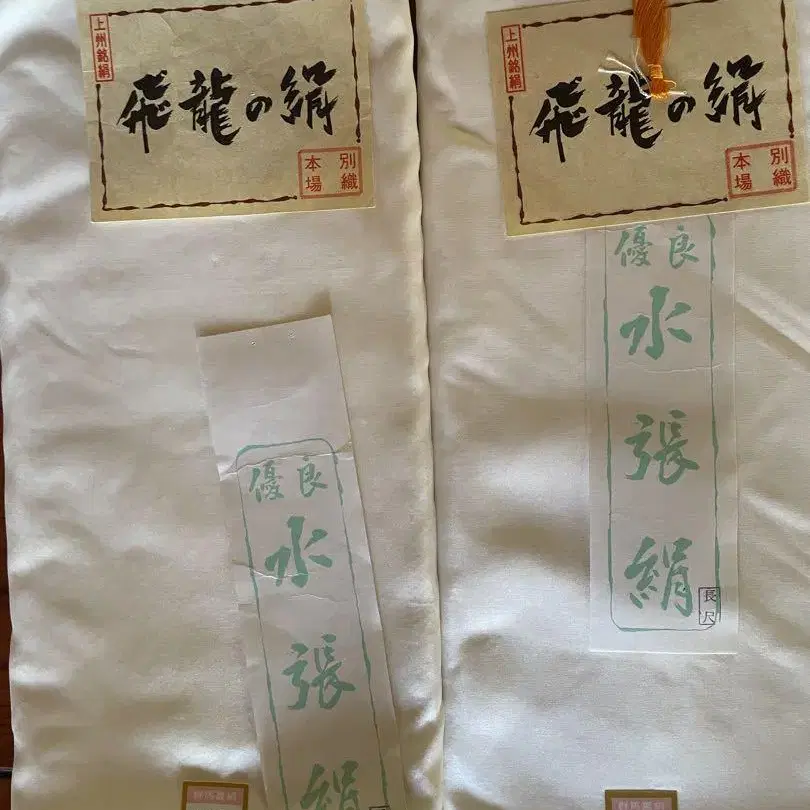 上州銘絹
飛龍の絹
別織
本場
優良
水張絹
上州銘絹
飛龍の絹
別織
本場
優良
水張絹
長尺